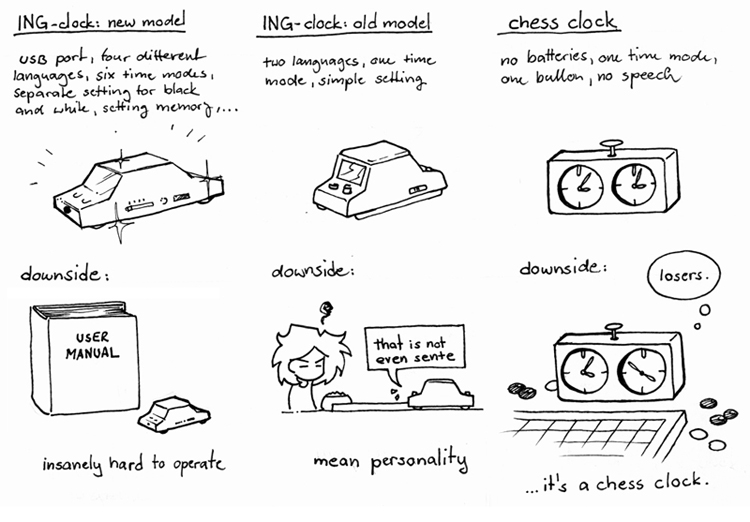 ING-clock: new model
USB port, four different
languages, six time modes,
separate setting for black
and white, setting memory,...
downside:
USER
MANUAL
insanely hard to operate
ING-clock: old model
two languages, one time
mode, simple setting
downside:
that is not
even sente
mean personality
chess clock
no batteries, one time mode,
one button, no speech
downside:
losers.
...it's a chess clock.